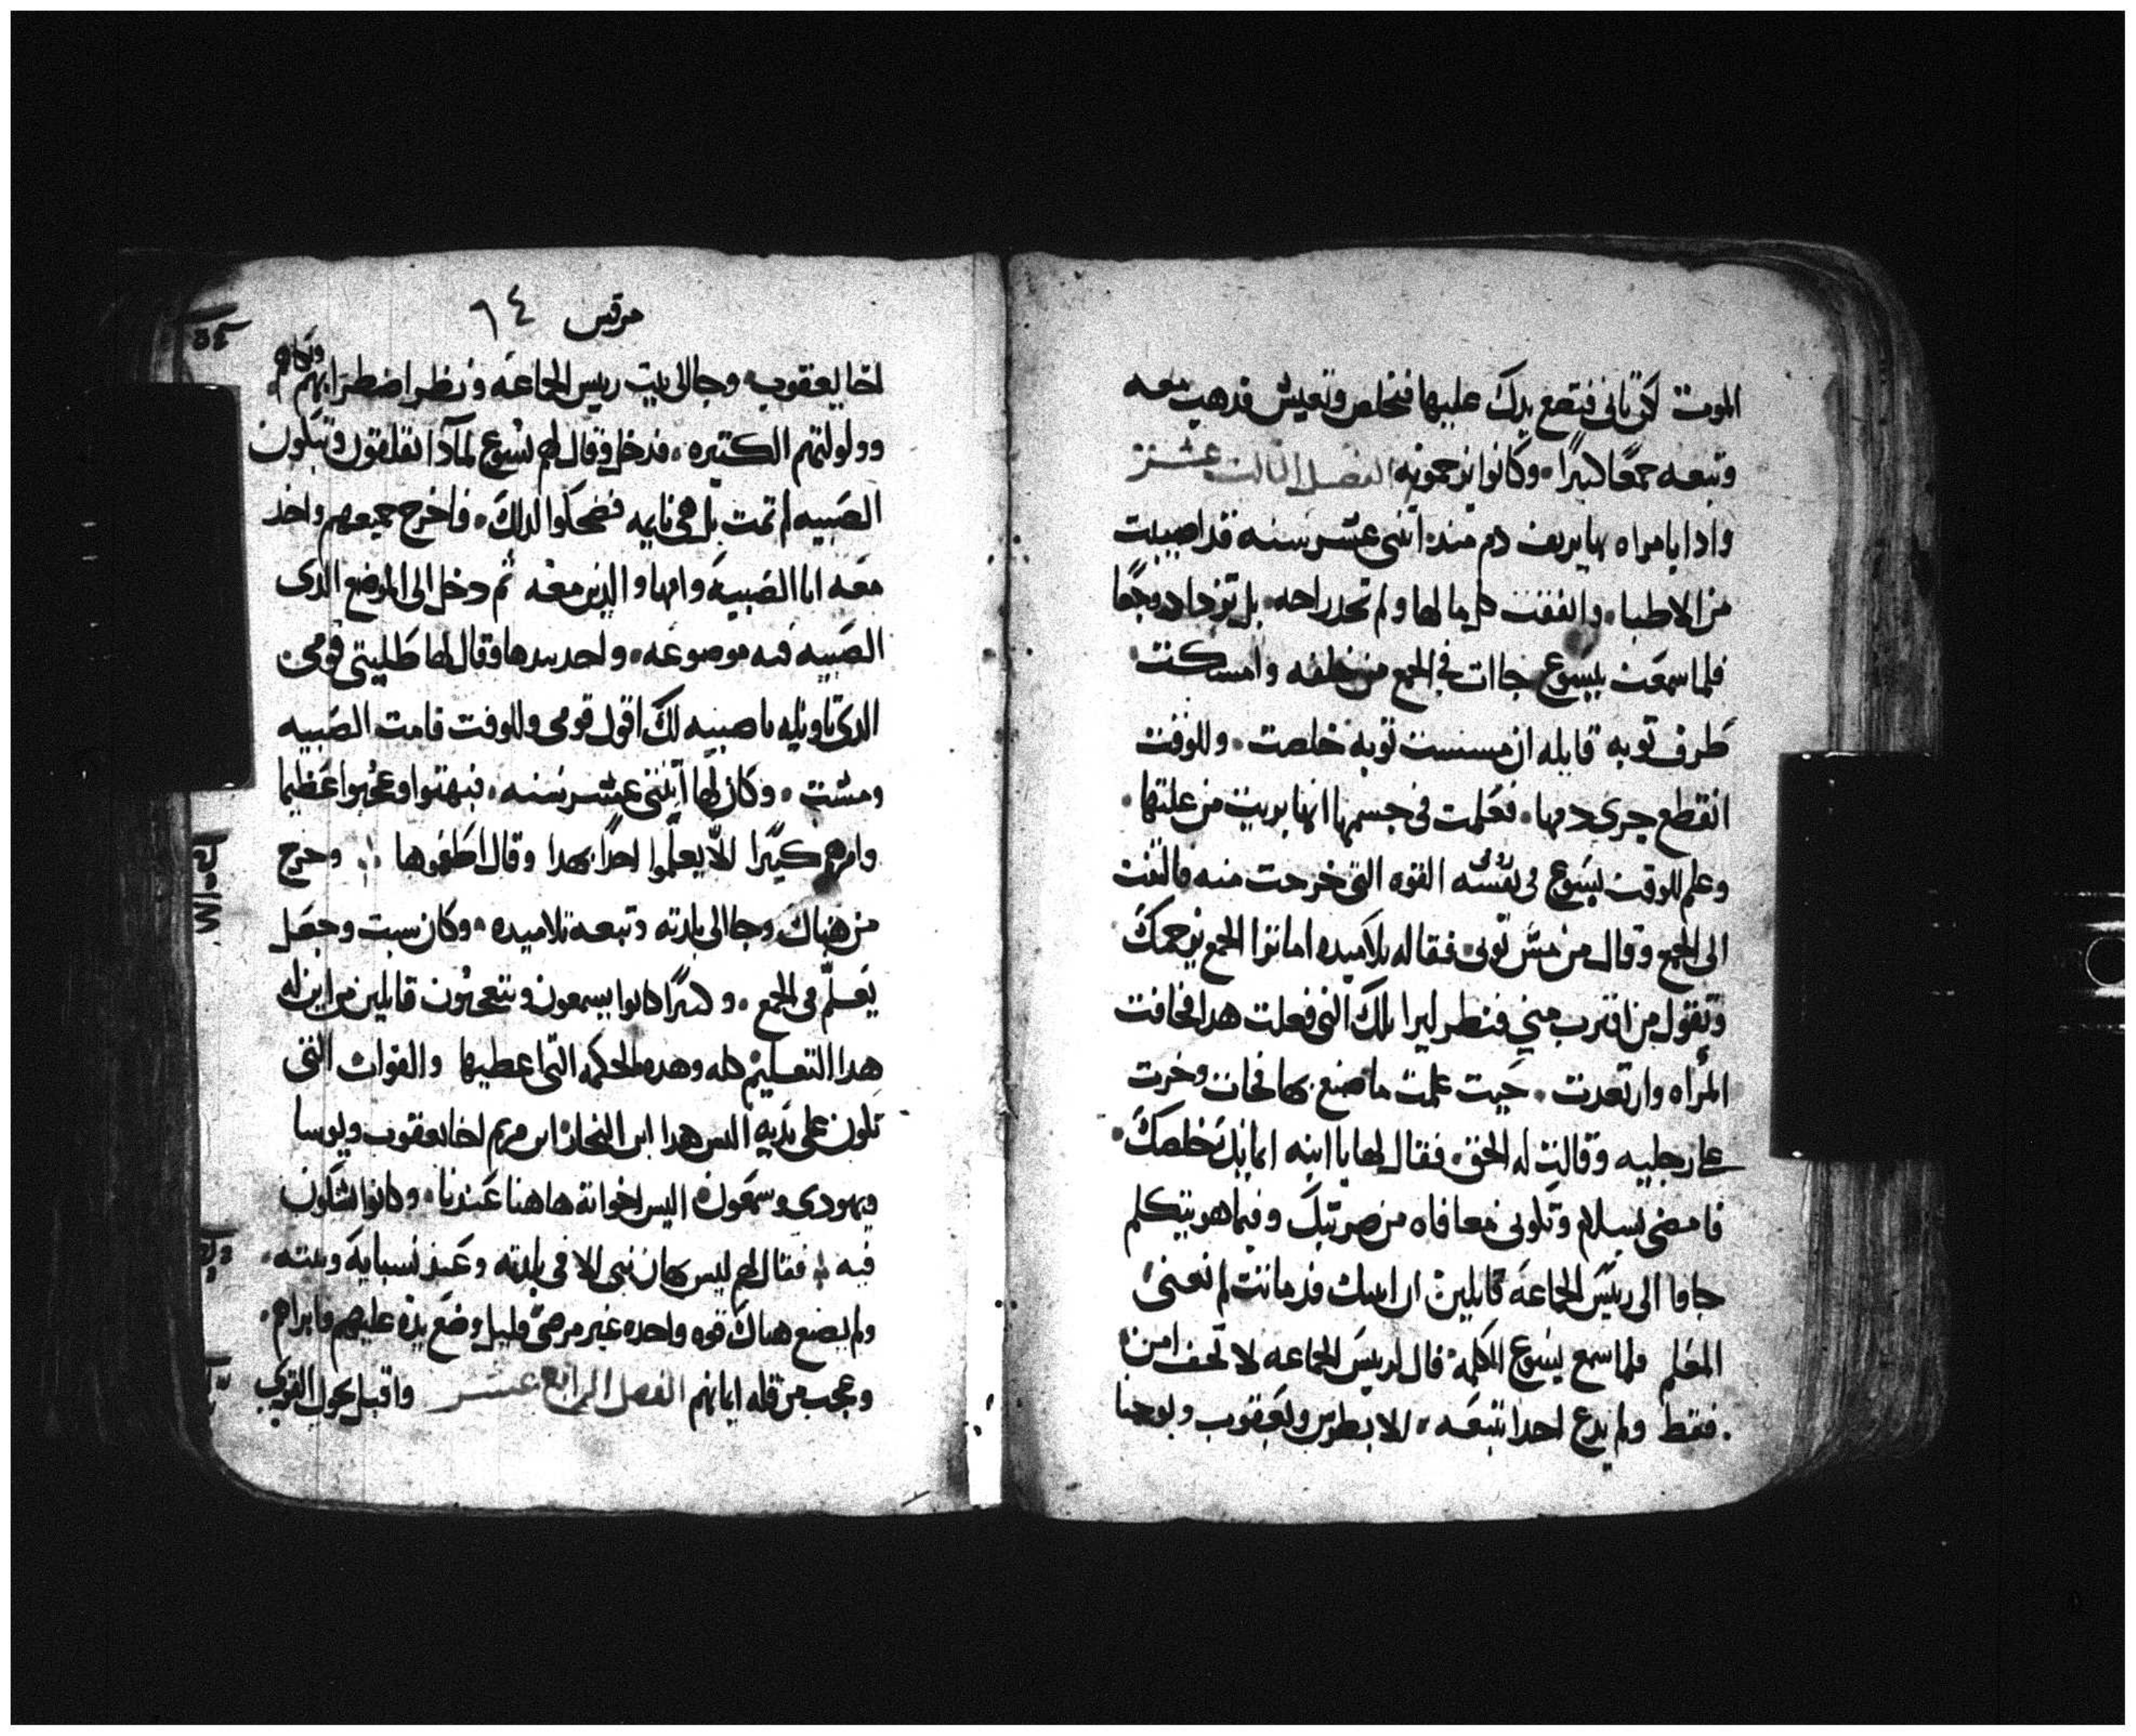 الموت لكن تاتى فتضع يدك عليها فتخلص وتعيش فدهب معه
وتبعه جمعًا كبيرًا وكانوا يزحمونه الفصل الثالث عشر
وادا بامراه بها نزيف دم مند اثنى عشر سنه قد اصيبت
من الاطبا وانفقت كل ما لها ولم تجد راحه بل تزداد وجعًا
فلما سمعت بيسوع جاات فى الجمع من خلفه وامسكت
طرف ثوبه قايله ان مسست ثوبه خلصت وللوقت
انقطع جرى دمها فعلمت فى جسمها انها بريت من علتها
وعلم للوقت يسوع فى نفسه القوه التى خرجت منه فالتفت
الى الجمع وقال من مس ثوبى فقال له تلاميده اما ترا الجمع يزحمك
وتقول من اقترب منى فنظر ليرا تلك التى فعلت هدا فخافت
المرأه وارتعدت حيت علمت ما صنع بها فجات وخرت
على رجليه وقالت له الحق فقال لها يا ابنه ايمانك خلصك
فامضى بسلام وتكونى معافاه من ضربتك وفيما هو يتكلم
جاوا الى رييس الجماعه قايلين ان ابنتك قد ماتت لم تعنى
المعلم فلما سمع يسوع الكلمه قال لرييس الجماعه لا تخف امن
فقط ولم يدع احدا يتبعه الا بطرس ويعقوب ويوحنا
مرقس ٦٤
اخا يعقوب وجا الى بيت رييس الجماعه ونظر اضطرابهم وبكاهم
وولولتهم الكتيره فدخل وقال لهم يسوع لمادا تقلقون وتبكون
الصبيه لم تمت بل هى نايمه فضحكوا لدلك فاخرج جميعهم واخد
معه ابا الصبيه وامها والدين معه ثم دخل الى الموضع الدى
الصبيه فيه موضوعه واخد بيدها وقال لها طليتى قومى
الدى تاويله يا صبيه لك اقول قومى وللوقت قامت الصبيه
ومشت وكان لها اثنى عشر سنه فبهتوا وعجبوا عظيما
وامرهم كتيرًا لئلا يعلموا احدًا بهدا وقال اطعموها وخرج
من هناك وجا الى بلدته وتبعه تلاميده وكان سبت وجعل
يعلم فى المجمع وكتيرًا كانوا يسمعون ويتعجبون قايلين من اين له
هدا التعليم كله وهده الحكمه التى اعطيها والقوات التى
تكون على يديه اليس هدا ابن النجار ابن مريم اخا يعقوب ويوسا
ويهودى وسمعون اليس اخواته هاهنا عندنا وكانوا يشكون
فيه فقال لهم ليس يهان نبى الا فى بلدته وعند نسبايه وبيته
ولم يصنع هناك قوه واحده غير مرضى قليل وضع يده عليهم فابراهم
وعجب من قله ايمانهم الفصل الرابع عشر واقبل يجول القرى